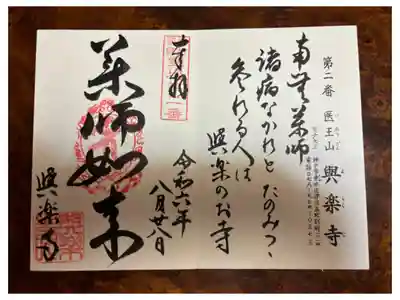 第二番 医王山 與楽寺
南無薬師
諸病なかれと たのみつゝ
参れる人は
與楽のお寺
令和六年
八月廿八日
奉拝
薬師如来
與楽寺